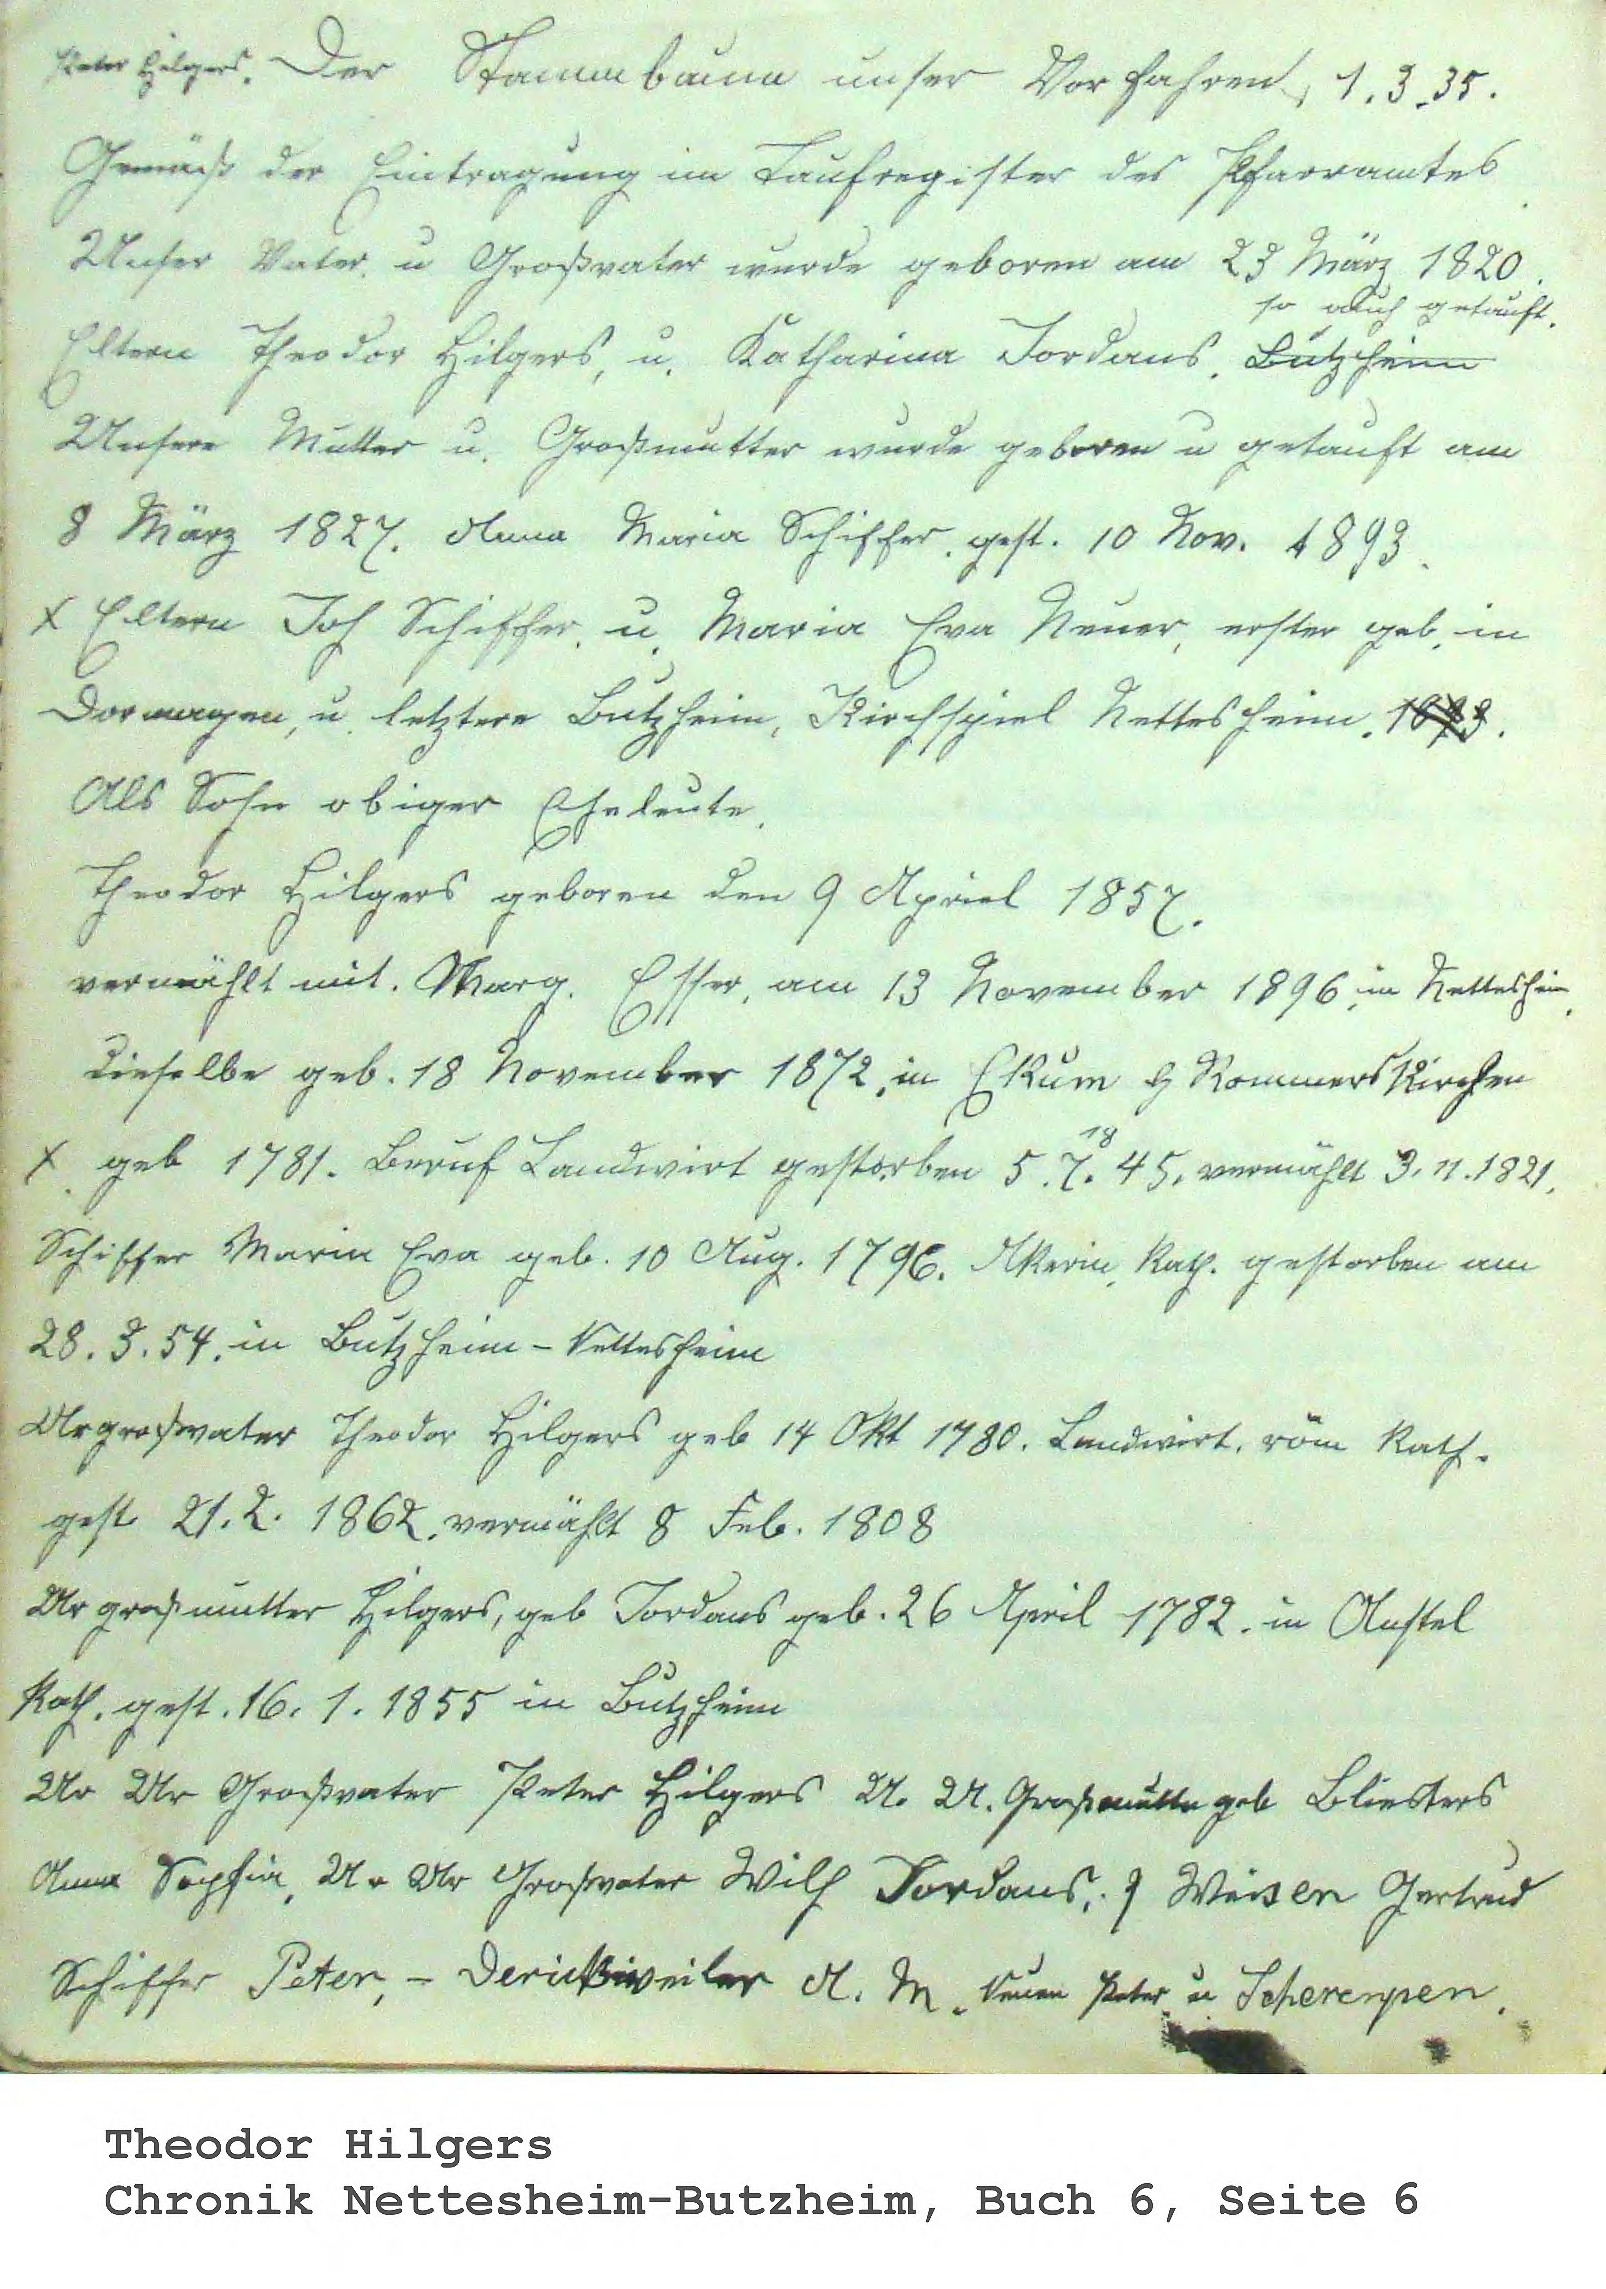 Peter Hilgers. Der Stammbaum unser Vorfahren, 1.3.35.
Gemäß der Eintragung im Taufregister des Pfarramtes
Unser Vater u Großvater wurde geboren am 23 März 1820.
so auch getauft.
Eltern Theodor Hilgers, u. Katharina Jordans. Butzheim
Unsere Mutter u. Großmutter wurde geboren u getauft am
8 März 1827. Anna Maria Schiffer. gest. 10 Nov. 1893.
x Eltern Joh Schiffer, u. Maria Eva Neuer, erster geb. in
Dormagen, u. letztere Butzheim, Kirchspiel Nettesheim.
Als Sohn obiger Eheleute.
Theodor Hilgers geboren den 9 Apriel 1857.
vermählt mit. Marg. Esser, am 13 November 1896, in Nettesheim.
dieselbe geb. 18 November 1872, in Ekum Rommerskirchen
x geb 1781. Beruf Landwirt gestorben 5.7.18 45, vermählt 3.11.1821.
Schiffer Maria Eva geb. 10 Aug. 1796. Akerin, Kath. gestorben am
28.3.54. in Butzheim-Nettesheim
Urgroßvater Theodor Hilgers geb 14 Okt 1780. Landwirt. röm Kath.
gest. 21.2. 1862. vermählt 8 Feb. 1808
Urgroßmutter Hilgers, geb Jordans geb. 26 April 1782. in Anstel
Kath. gest. 16. 1. 1855 in Butzheim
Ur Ur Großvater Peter Hilgers U. U. Großmutter geb Bliesters
Anna Sophia, Ur Ur Großvater Wilh Jordans, Weisen Gertrud
Schiffer Peter, - A. M. Neuen Peter u Scherenpen.
Theodor Hilgers
Chronik Nettesheim-Butzheim, Buch 6, Seite 6